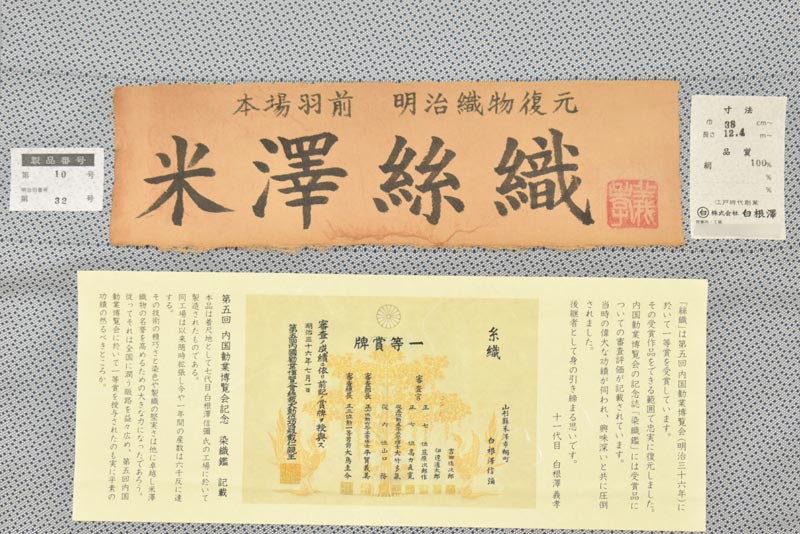 本場羽前 明治織物復元
米澤絲織
義孝
製品番号
第 10 号
明治期番号
第 32 号
寸法
巾 38 cm
長さ 12.4 m
品質
絹 100%
%
%
江戸時代創業
株式会社 白根澤
「絲織」は第五回 内国勧業博覧会(明治三十六年)に
於いて一等賞を受賞しています。
その受賞作品をできる範囲で忠実に復元しました。
内国勧業博覧会の記念誌「染織鑑」には受賞品に
ついての審査評価が記載されています。
当時の偉大な功績が伺われ、興味深いと共に圧倒
されました。
後継者として身の引き締まる思いです。
十一代目 白根澤 義孝
一等賞牌
糸織
山形縣米澤市桐町
白根澤信彌
審査ノ成績ニ依リ前記ノ賞牌ヲ授與ス
明治三十六年七月一日
審査官
第五回 内国勧業博覧会記念 染織鑑 記載
本品は着尺地として七代目 白根澤信彌 氏の工場に於いて
製造されたものである。
同工場は以来随時拡張し今や一年間の産数は六千反に達
する。
その技術の精巧さと染色や製織の堅実さは他に卓越し米澤
織物の名誉を高めるための大きな力になったであろう。
従ってそれは全国に渡り販路を益々広め、第五回 内国
勧業博覧会に於いて一等賞を授与されたのも実に平素の
功績の然るべきところか。